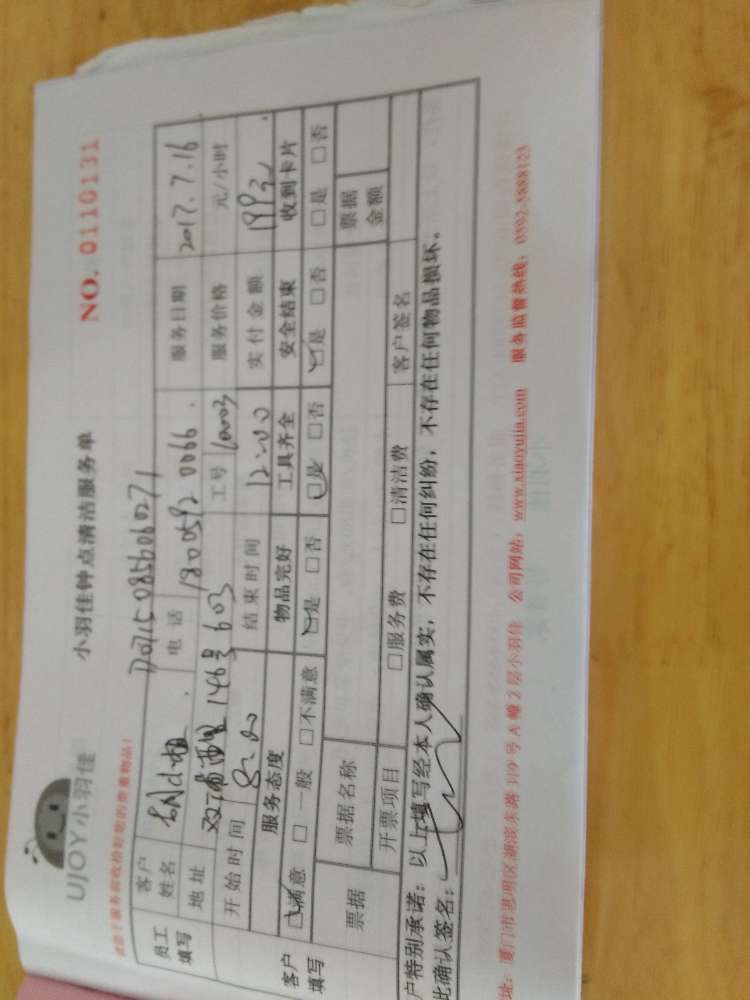 UJOY小羽佳
小羽佳钟点清洁服务单
NO. 0110131
请您于服务前收捡好您的贵重物品!
D07150856060271
员工填写 客户姓名 小姐 电话 180 0592 0066. 服务日期 2017.7.16
地址 146号603 工号 服务价格 元/小时
开始时间 8:00 结束时间 12:00 实付金额 199元
客户填写 服务态度 物品完好 工具齐全 安全结束 收到卡片
☑满意 □一般 □不满意 ☑是 □否 ☑是 □否 ☑是 □否 □是 □否
票据 票据名称 票据金额
开票项目 □服务费 □清洁费 客户签名
户特别承诺:以上填写经本人确认属实,不存在任何纠纷,不存在任何物品损坏。
此确认签名:
址:厦门市思明区湖滨东路319号A幢2层小羽佳 公司网站:www.xiaoyujia.com 服务监督热线:0592-5888123